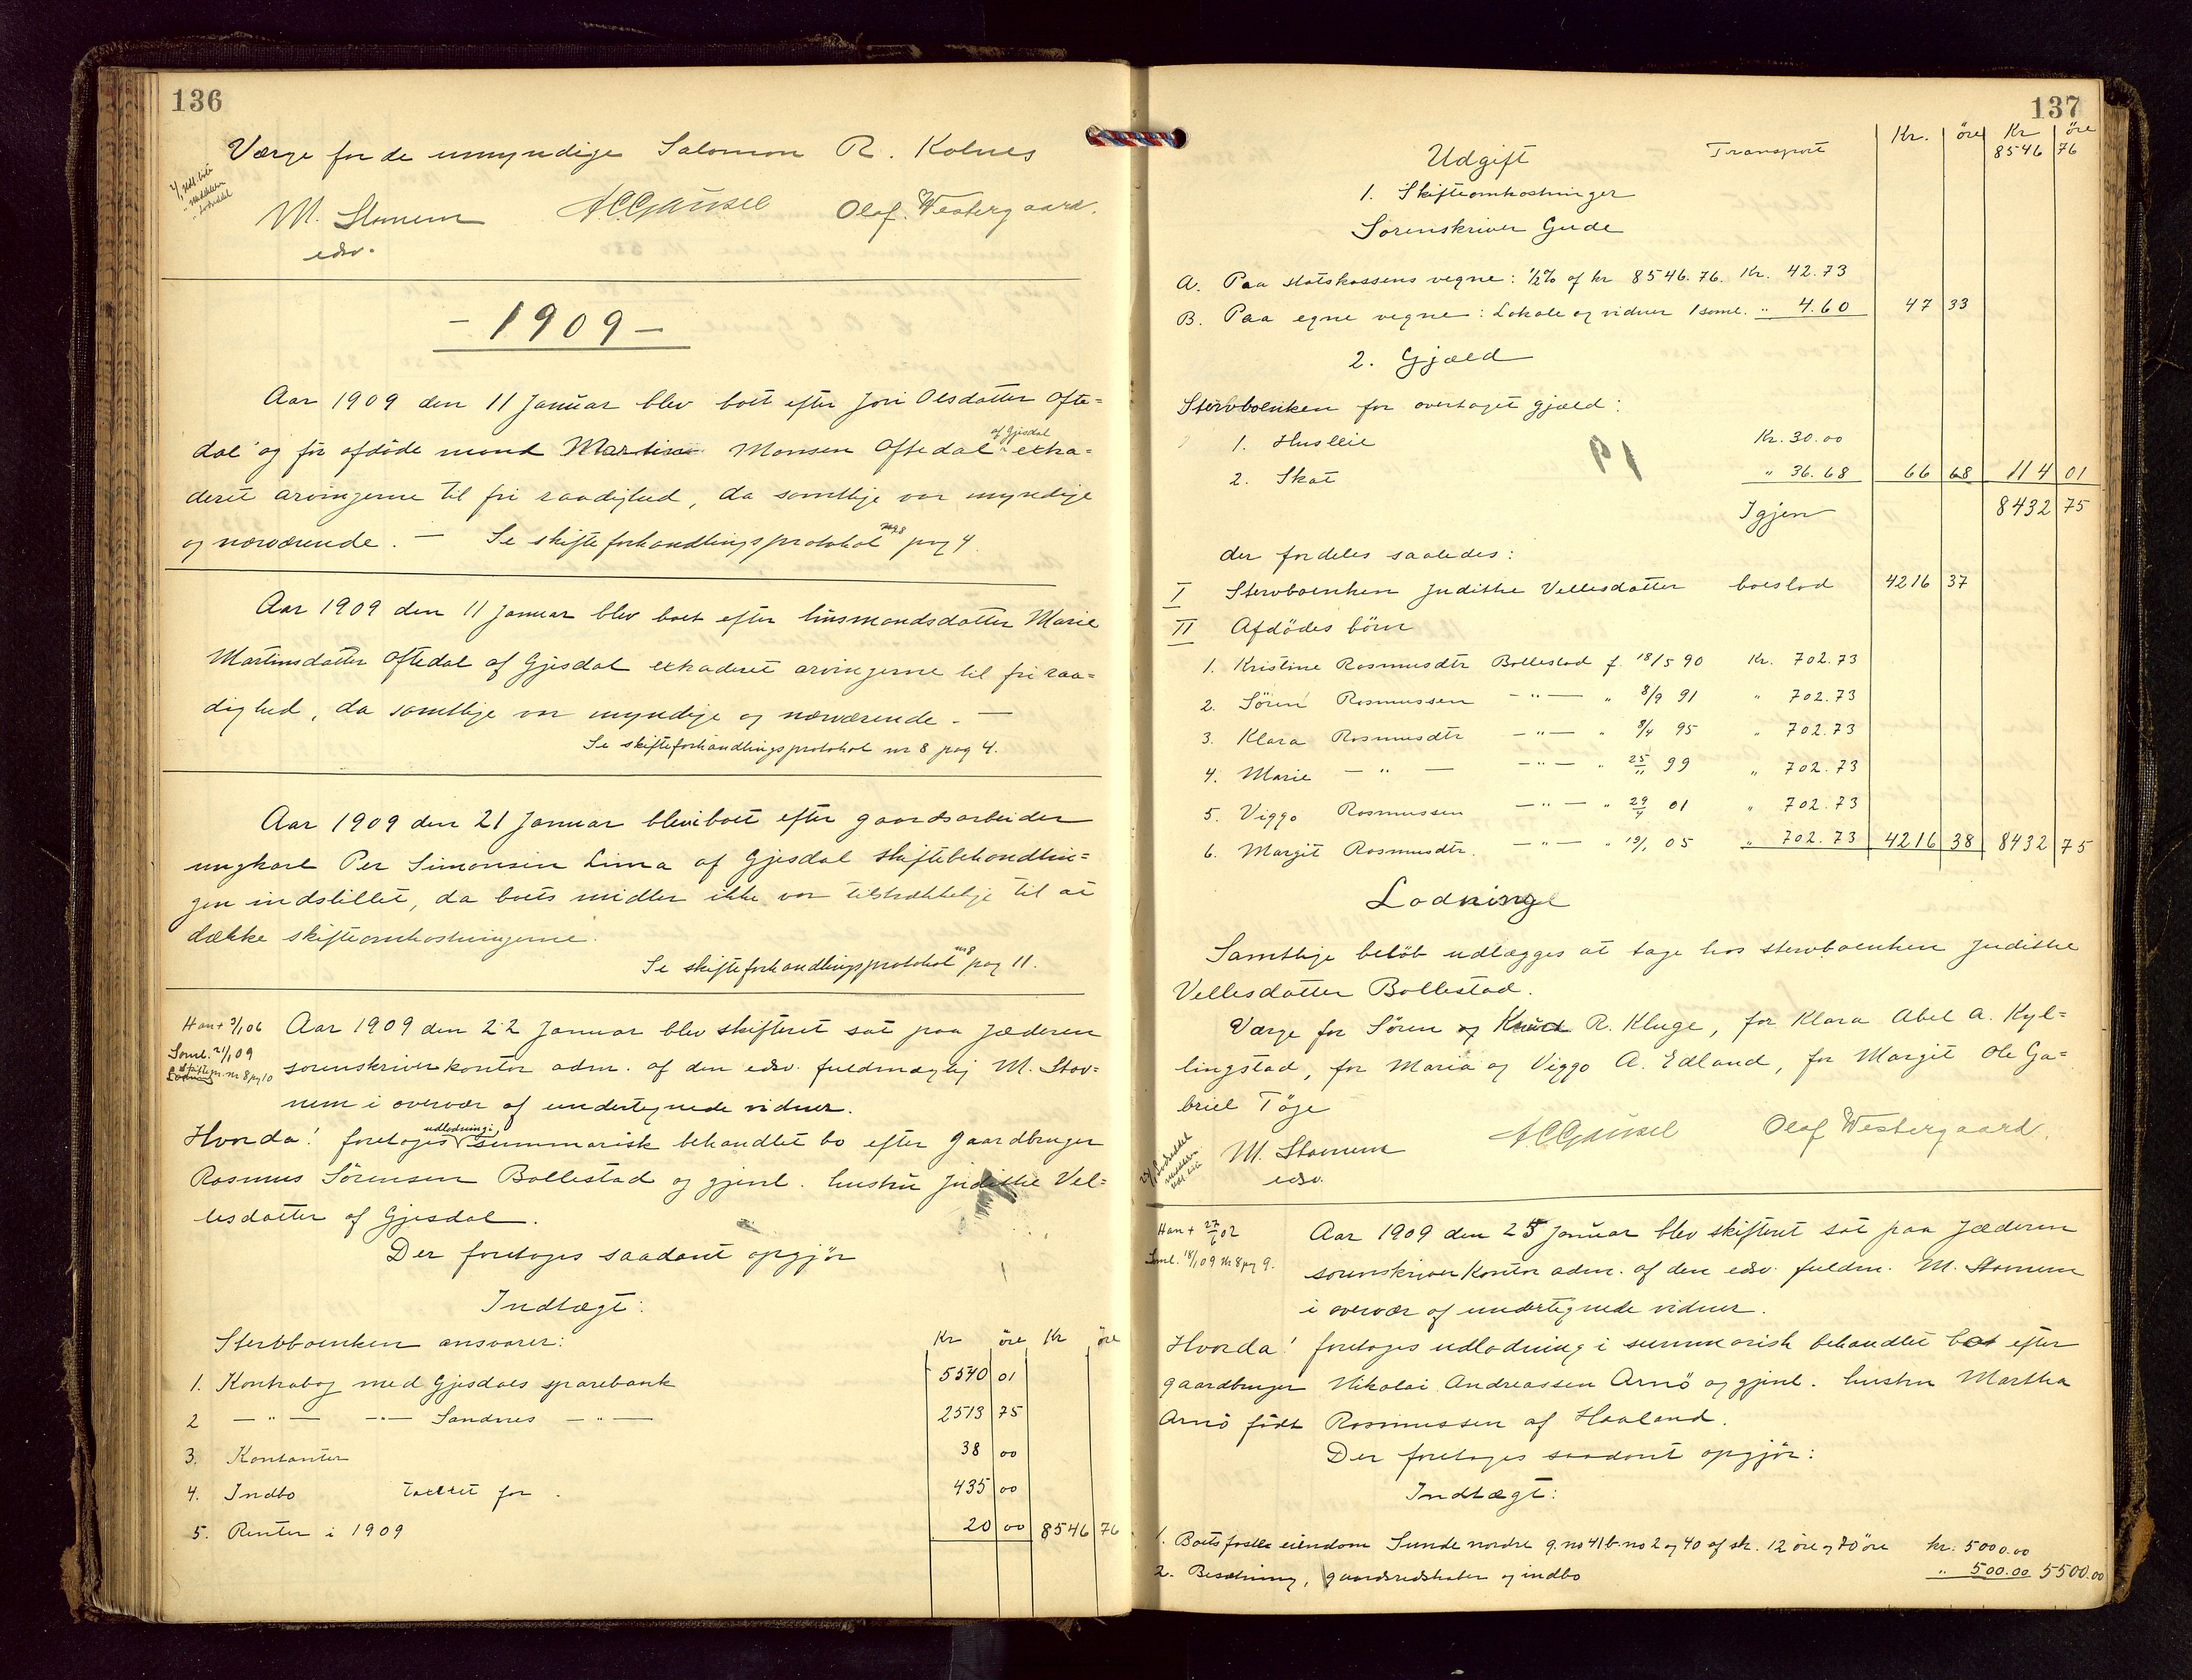 136
Værge for de umyndige Salomon R. Kolnes
M. Stavnem ACGausel Olaf Westergaard.
edsv.
- 1909 -
Aar 1909 den 11 Januar blev boet efter Jori Olsdatter Ofte=
dal og før afdöde mand Martin Monsen Oftedal af Gjesdal extra=
deret arvingerne til fri raadighed, da samtlige var myndige
og nærværende. — Se skifteforhandlingsprotokol nr 8 pag 4
Aar 1909 den 11 Januar blev boet efter husmandsdatter Marie
Martinsdatter Oftedal af Gjesdal extraderet arvingerne til fri raa=
dighed, da samtlige var myndige og nærværende. —
Se skifteforhandlingsprotokol nr 8 pag 4.
Aar 1909 den 21 Januar blev i boet efter gaardsarbeider
ungkarl Per Simonsen Lima af Gjesdal skiftebehandlin=
gen indstillet, da boets midler ikke var tilstrækkelige til at
dække skifteomkostningerne.
Se skifteforhandlingsprotokol nr 8 pag 11.
Han + 3/1 06
Saml. 21/1 09
skiftepr. nr 8 pg 10
Aar 1909 den 22 Januar blev skifteret sat paa Jæderen
sorenskriverkontor adm. af den edsv. fuldmægtig M. Stav=
nem i overvær af undertegnede vidner.
Hvorda! foretoges udlodning i summarisk behandlet bo efter gaardbruger
Rasmus Sörensen Bollestad og gjenl. hustru Judithe Vel=
lesdatter af Gjesdal.
Der foretoges saadant opgjör
Indtægt:
Stervboenken ansvarer: Kr öre Kr öre
1. Kontrabog med Gjesdals sparebank 5540 01
2 — " — — " — Sandnes — " — 2513 75
3. Kontanter 38 00
4. Indbo taxtet for 435 00
5. Renter i 1909 20 00 8546 76
137
Kr. öre Kr öre
Udgift Transport 8546 76
1. Skifteomkostninger
Sorenskriver Gude
A. Paa statskassens vegne: ½% af kr 8546.76. Kr. 42.73
B. Paa egne vegne: Lokale og vidner 1 saml. " 4.60 47 33
2. Gjæld
Stervboenken for overtaget gjæld:
1. Husleie Kr. 30.00
2. Skat " 36.68 66 68 114 01
Igjen 8432 75
der fordeles saaledes:
I Stervboenken Judithe Vellesdatter boeslod 4216 37
II Afdödes börn
1. Kristine Rasmusdtr Bollestad f. 18/5 90 Kr. 702.73
2. Sören Rasmussen — " — " 8/9 91 " 702.73
3. Klara Rasmusdtr — " — " 8/4 95 " 702.73
4. Marie — " — — " — " 25/11 99 " 702.73
5. Viggo Rasmussen — " — " 29/9 01 " 702.73
6. Margit Rasmusdtr. — " — " 19/1 05 " 702.73 4216 38 8432 75
Lodning
Samtlige belöb udlægges at tage hos stervboenken Judithe
Vellesdatter Bollestad.
Værge for Sören R. Kluge, for Klara Abel A. Kyl=
lingstad, for Maria og Viggo A. Edland, for Margit Ole Ga=
briel Töge
M. Stavnem ACGausel Olaf Westergaard.
edsv.
Han + 27/6 02
Saml. 18/1 09 nr 8 pg 9.
Aar 1909 den 25 Januar blev skifteret sat paa Jæderen
sorenskriver kontor adm. af den edsv. fuldm. M. Stavnem
i overvær af undertegnede vidner.
Hvorda! foretoges udlodning i summarisk behandlet bo efter
gaardbruger Nikolai Andreassen Arnö og gjenl. hustru Martha
Arnö födt Rasmussen af Haaland.
Der foretoges saadant opgjör:
Indtægt:
1. Boets faste eiendom Sunde nordre g. no 41 b. no 2 og 40 af sk. 12 öre og 70 öre kr. 5000.00
2. Besætning, gaardsredskaber og indbo " 500.00 5500.00